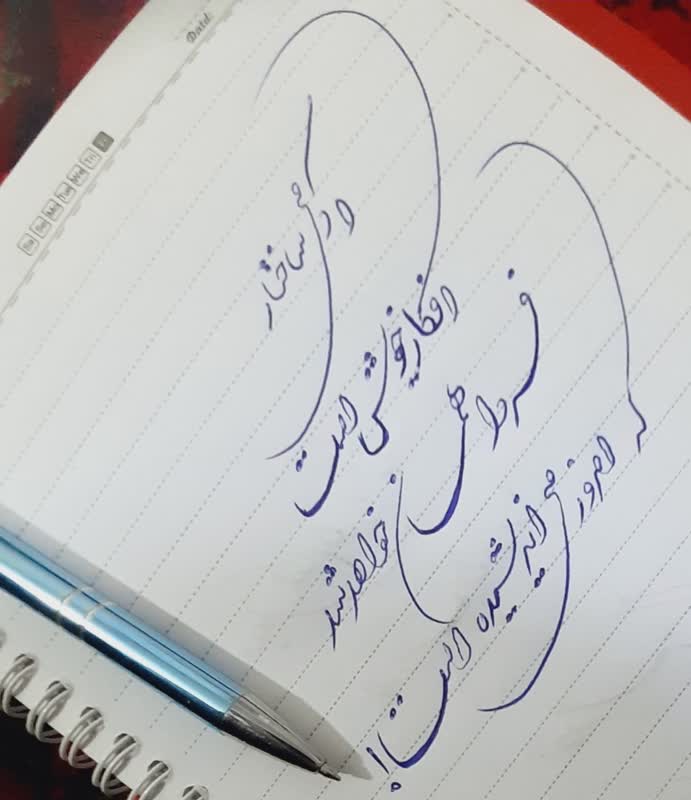 Date:
آدمی ساختار
افکار خویش است
فردا همان خواهد شد
که امروز می اندیشیده است!